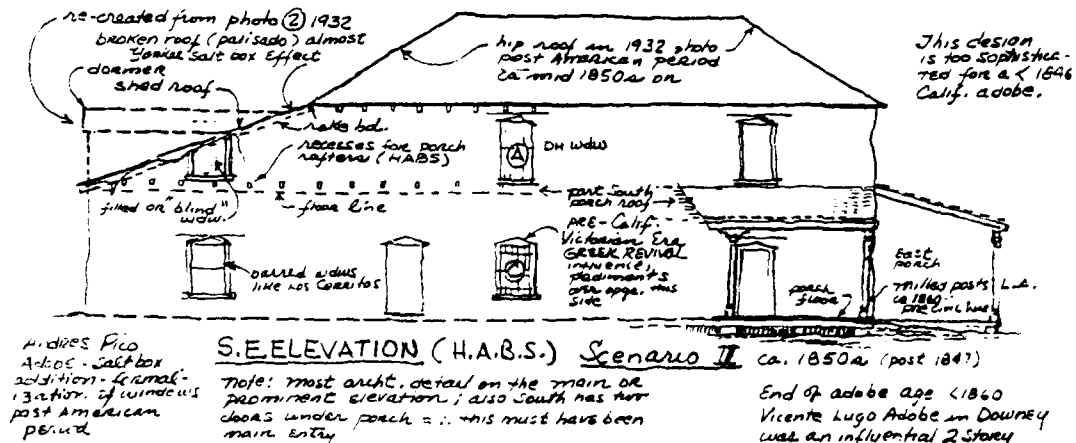 re-created from photo ② 1932
broken roof (palisado) almost
Yonker Salt box Effect
dormer
shed roof
hip roof in 1932 photo
post American period
ca mid 1850s on
This design
is too sophistica-
ted for a < 1846
Calif. adobe.
rake bd.
recesses for porch
rafters (HABS)
A
DH wdw
filled or "blind"
wdw.
floor line
part South
porch roof
PRE-Calif.
Victorian Era
GREEK REVIVAL
influence,
pediments
over opgs. this
side
barred wdws
like Los Cerritos
East
porch
milled posts L.A.
ca 1860
porch
floor
Andres Pico
Adobe - Saltbox
addition - formal-
ization of windows
post American
period
S.E. ELEVATION (H.A.B.S.) Scenario II
ca. 1850s (post 1847)
Note: most archt. detail on the main or
prominent elevation; also South has two
doors under porch = ∴ this must have been
main entry
End of adobe age < 1860
Vicente Lugo Adobe in Downey
was an influential 2 Story